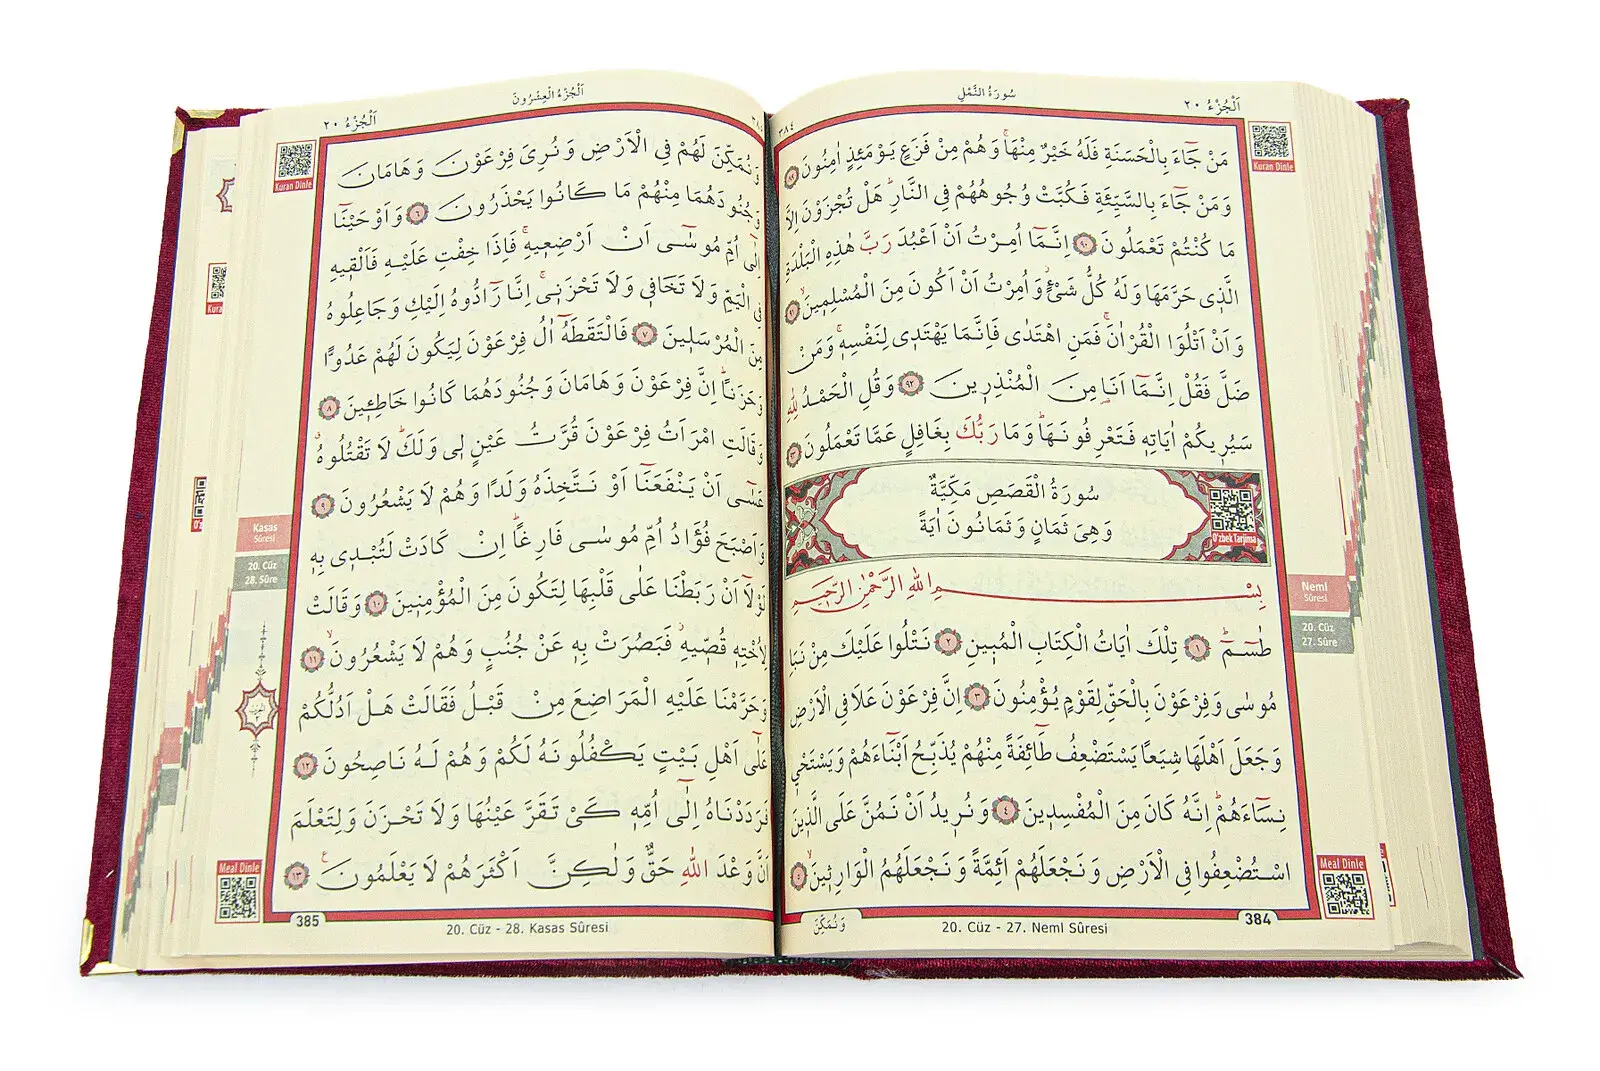 سُورَةُ النَّمْلِ
اَلْجُزْءُ ٢٠
٣٨٤
Kuran Dinle
مَنْ جَٓاءَ بِالْحَسَنَةِ فَلَهُ خَيْرٌ مِنْهَاۚ وَهُمْ مِنْ فَزَعٍ يَوْمَئِذٍ اٰمِنُونَ ٨٩
وَمَنْ جَٓاءَ بِالسَّيِّئَةِ فَكُبَّتْ وُجُوهُهُمْ فِي النَّارِۜ هَلْ تُجْزَوْنَ اِلَّا
مَا كُنْتُمْ تَعْمَلُونَ ٩٠ اِنَّمَٓا اُمِرْتُ اَنْ اَعْبُدَ رَبَّ هٰذِهِ الْبَلْدَةِ
الَّذ۪ي حَرَّمَهَا وَلَهُ كُلُّ شَيْءٍۘ وَاُمِرْتُ اَنْ اَكُونَ مِنَ الْمُسْلِم۪ينَۙ ٩١
وَاَنْ اَتْلُوَا الْقُرْاٰنَۚ فَمَنِ اهْتَدٰى فَاِنَّمَا يَهْتَد۪ي لِنَفْسِه۪ۚ وَمَنْ
ضَلَّ فَقُلْ اِنَّمَٓا اَنَا۬ مِنَ الْمُنْذِر۪ينَ ٩٢ وَقُلِ الْحَمْدُ لِلّٰهِ
سَيُر۪يكُمْ اٰيَاتِه۪ فَتَعْرِفُونَهَاۜ وَمَا رَبُّكَ بِغَافِلٍ عَمَّا تَعْمَلُونَ ٩٣
سُورَةُ الْقَصَصِ مَكِّيَّةٌ
وَهِيَ ثَمَانٍ وَثَمَانُونَ اٰيَةً
O'zbek Tarjima
بِسْمِ اللّٰهِ الرَّحْمٰنِ الرَّح۪يمِ
Neml
Sûresi
20. Cüz
27. Sûre
طٰسٓمٓۜ ١ تِلْكَ اٰيَاتُ الْكِتَابِ الْمُب۪ينِ ٢ نَتْلُوا عَلَيْكَ مِنْ نَبَاِ
مُوسٰى وَفِرْعَوْنَ بِالْحَقِّ لِقَوْمٍ يُؤْمِنُونَ ٣ اِنَّ فِرْعَوْنَ عَلَا فِي الْاَرْضِ
وَجَعَلَ اَهْلَهَا شِيَعًا يَسْتَضْعِفُ طَٓائِفَةً مِنْهُمْ يُذَبِّحُ اَبْنَٓاءَهُمْ وَيَسْتَحْي۪
نِسَٓاءَهُمْۜ اِنَّهُ كَانَ مِنَ الْمُفْسِد۪ينَ ٤ وَنُر۪يدُ اَنْ نَمُنَّ عَلَى الَّذ۪ينَ
اسْتُضْعِفُوا فِي الْاَرْضِ وَنَجْعَلَهُمْ اَئِمَّةً وَنَجْعَلَهُمُ الْوَارِث۪ينَۙ ٥
Meal Dinle
384
20. Cüz - 27. Neml Sûresi
وَنُمَكِّنَ
اَلْجُزْءُ الْعِشْرُونَ
اَلْجُزْءُ ٢٠
Kuran Dinle
وَنُمَكِّنَ لَهُمْ فِي الْاَرْضِ وَنُرِيَ فِرْعَوْنَ وَهَامَانَ
وَجُنُودَهُمَا مِنْهُمْ مَا كَانُوا يَحْذَرُونَ ٦ وَاَوْحَيْنَٓا
اِلٰٓى اُمِّ مُوسٰٓى اَنْ اَرْضِع۪يهِۚ فَاِذَا خِفْتِ عَلَيْهِ فَاَلْق۪يهِ
فِي الْيَمِّ وَلَا تَخَاف۪ي وَلَا تَحْزَن۪يۚ اِنَّا رَٓادُّوهُ اِلَيْكِ وَجَاعِلُوهُ
مِنَ الْمُرْسَل۪ينَ ٧ فَالْتَقَطَهُٓ اٰلُ فِرْعَوْنَ لِيَكُونَ لَهُمْ عَدُوًّا
وَحَزَنًاۜ اِنَّ فِرْعَوْنَ وَهَامَانَ وَجُنُودَهُمَا كَانُوا خَاطِـ۪ٔينَ ٨
وَقَالَتِ امْرَاَتُ فِرْعَوْنَ قُرَّتُ عَيْنٍ ل۪ي وَلَكَۜ لَا تَقْتُلُوهُۗ
عَسٰٓى اَنْ يَنْفَعَنَٓا اَوْ نَتَّخِذَهُ وَلَدًا وَهُمْ لَا يَشْعُرُونَ ٩
وَاَصْبَحَ فُؤٰادُ اُمِّ مُوسٰى فَارِغًاۜ اِنْ كَادَتْ لَتُبْد۪ي بِه۪
لَوْلَٓا اَنْ رَبَطْنَا عَلٰى قَلْبِهَا لِتَكُونَ مِنَ الْمُؤْمِن۪ينَ ١٠ وَقَالَتْ
لِاُخْتِه۪ قُصّ۪يهِۘ فَبَصُرَتْ بِه۪ عَنْ جُنُبٍ وَهُمْ لَا يَشْعُرُونَۙ ١١
وَحَرَّمْنَا عَلَيْهِ الْمَرَاضِعَ مِنْ قَبْلُ فَقَالَتْ هَلْ اَدُلُّكُمْ
عَلٰٓى اَهْلِ بَيْتٍ يَكْفُلُونَهُ لَكُمْ وَهُمْ لَهُ نَاصِحُونَ ١٢
فَرَدَدْنَاهُ اِلٰٓى اُمِّه۪ كَيْ تَقَرَّ عَيْنُهَا وَلَا تَحْزَنَ وَلِتَعْلَمَ
اَنَّ وَعْدَ اللّٰهِ حَقٌّ وَلٰكِنَّ اَكْثَرَهُمْ لَا يَعْلَمُونَ۟ ١٣
Kasas
Sûresi
20. Cüz
28. Sûre
Meal Dinle
385
20. Cüz - 28. Kasas Sûresi